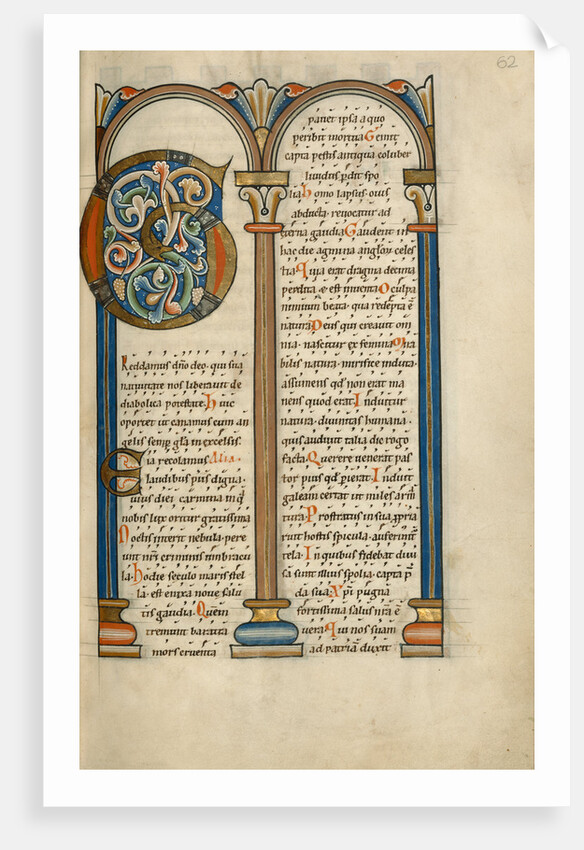 62
Reddamus dño deo. qui sua
natiuitate nos liberauit de
diabolica potestate. huic
oportet ut canamus cum an
gelis semp. gła in excelsis.
Eia recolamus Alia.
laudibus piis digna.
uius diei carmina in q̃
nobis lux oritur gratissima
Noctis interit nebula. pere
unt nr̃i criminis umbracu
la. hodie seculo maris stel
la. est enixa noue salu
tis gaudia. Quem
tremunt baratra
mors cruenta
pauet ipsa a quo
peribit mortua Gemit
capta pestis antiqua coluber
liuidus p̄dit spo
lia homo lapsus. ouis
abducta. reuocatur ad
eterna gaudia Gaudent in
hac die agmina angloꝝ celes
tia Quia erat dragma decima
perdita & est inuenta O culpa
nimium beata. qua redepta ē
natura Deus qui creauit om
nia. nascitur ex femina Mira
bilis natura. mirifice induta.
assumens qd̃ non erat ma
nens quod erat. Induitur
natura. diuinitas humana.
quis audiuit talia die rogo
facta. Querere uenerat pas
tor pius qd̃ p̄ierat. Induit
galeam certat ut miles arm
tura. Prostratus in sua ꝓpria
ruit hostis spicula. auferunt
tela. In quibus fidebat diui
sa sunt illius spolia. capta p̄
da sua. Xp̄i pugna
fortissima salus nr̃a ē
uera. qui nos suam
ad patriam duxit